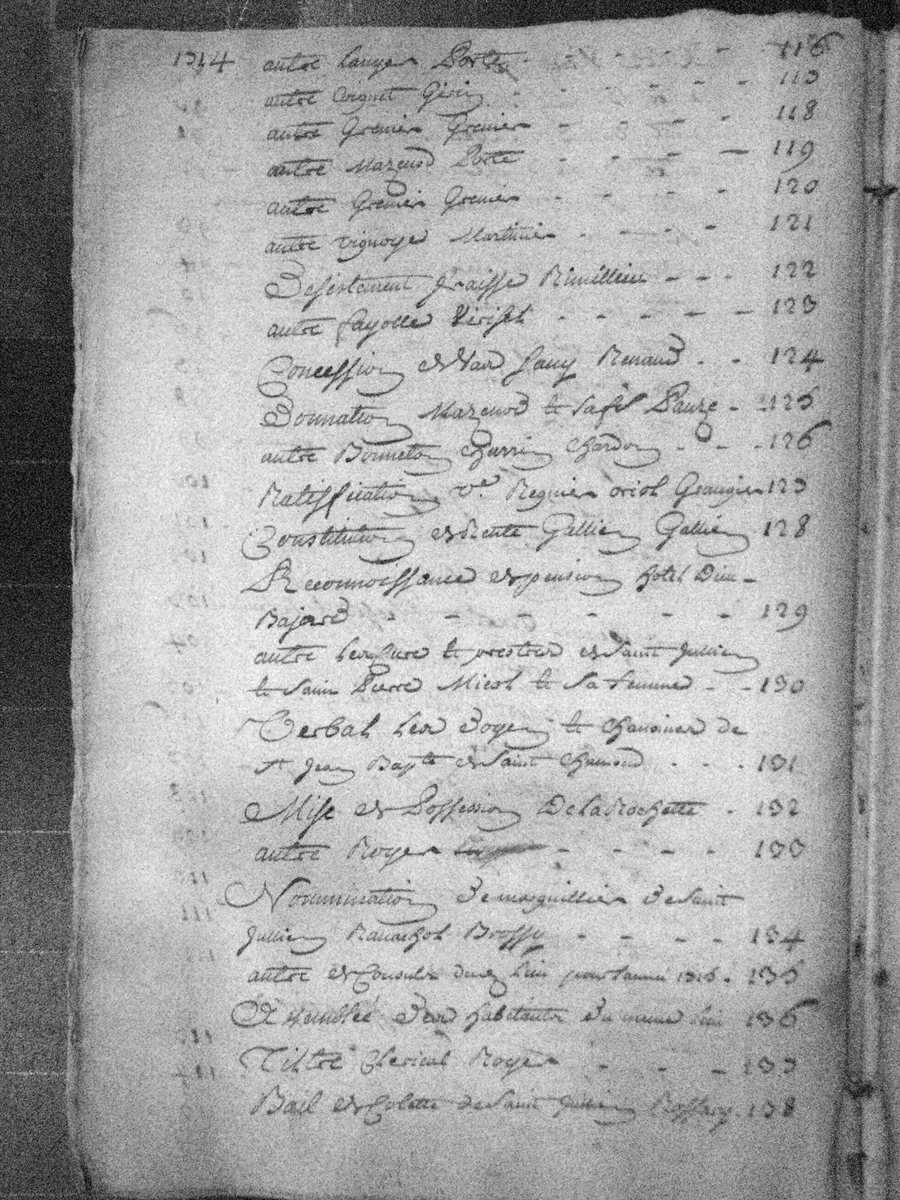 1744 autre Lanyer Porte - - - 116
autre Coignet Gerin - - - - 117
autre Grenier Grenier - - - - 118
autre Mazenod Porte - - - - 119
autre Grenier Grenier - - - - 120
autre vignoye Martinier - - - - 121
Desistement fraisse Rimilliere - - - 122
autre fayolle - - - - - 123
Concession Renaud - - 124
Donnation Mazenod & Sauze - 125
autre Bonneton Charrin Chardon - - - 126
Ratiffication ve. Regnier oriol Grangier 127
Constitution de Rente Gallien Gallien 128
Reconnoissance de pension hotel Dieu -
Bajard - - - - - - - 129
autre les Cure & prestres de Saint Jullien
& Saint Pierre Micol & Sa femme - - 130
Verbal les Doyen & Chanoines de
St Jean Bapte de Saint Chamond - - - 131
Mise de Possession De la Rochette - 132
autre Royer - - - - 133
Nommination De marguillier De Saint
Jullien Ravachol Brossy - - - - 134
autre de Consuls dud. lieu pour lannee - 135
Assemblée Des habitants Du meme lieu 136
Tiltre Clerical Royer - - - 137
Bail de Colette de Saint Jullien Rossary. 138